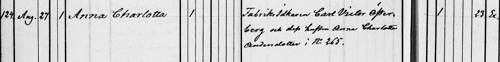 124 Aug. 27 1 Anna Charlotta 1 Fabriksidkaren Carl Victor Öster- 1 23 Se
berg och dess hustru Anna Charlotta
Andersdotter i No 265.